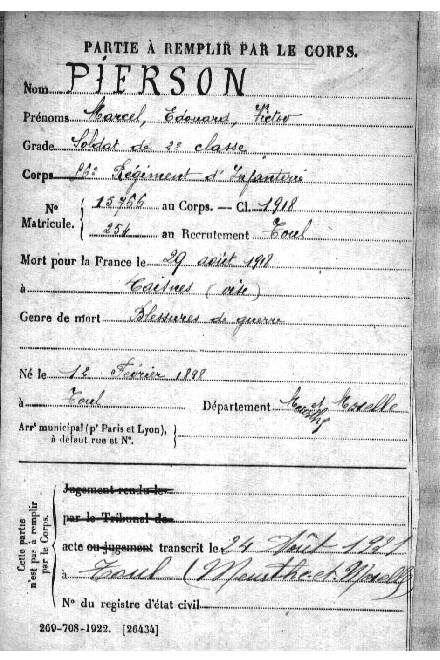 PARTIE À REMPLIR PAR LE CORPS.
Nom PIERSON
Prénoms Marcel, Edouard, Victor
Grade Soldat de 2e classe
Corps Régiment d'Infanterie
N° 15766 au Corps. — Cl. 1918
Matricule. 254 au Recrutement Toul
Mort pour la France le 29 août 1918
à (oise)
Genre de mort Blessures de guerre
Né le 12 Février 1898
à Toul Département Meurthe et Moselle
Arrt municipal (pr Paris et Lyon),
à défaut rue et N°.
Cette partie
n'est pas à remplir
par le Corps.
Jugement rendu le
par le Tribunal de
acte ou jugement transcrit le 24 Août 1921
à Toul (Meurthe et Moselle)
N° du registre d'état civil
269-708-1922. [26434]